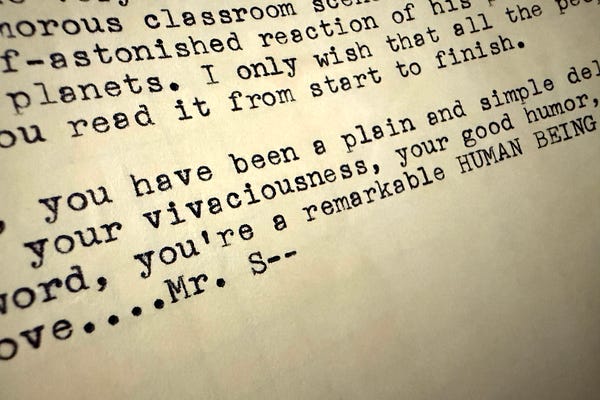 norous classroom
f-astonished reaction of his
planets. I only wish that all the
ou read it from start to finish.
, you have been a plain and simple del
your vivaciousness, your good humor,
word, you're a remarkable HUMAN BEING
ove....Mr. S--